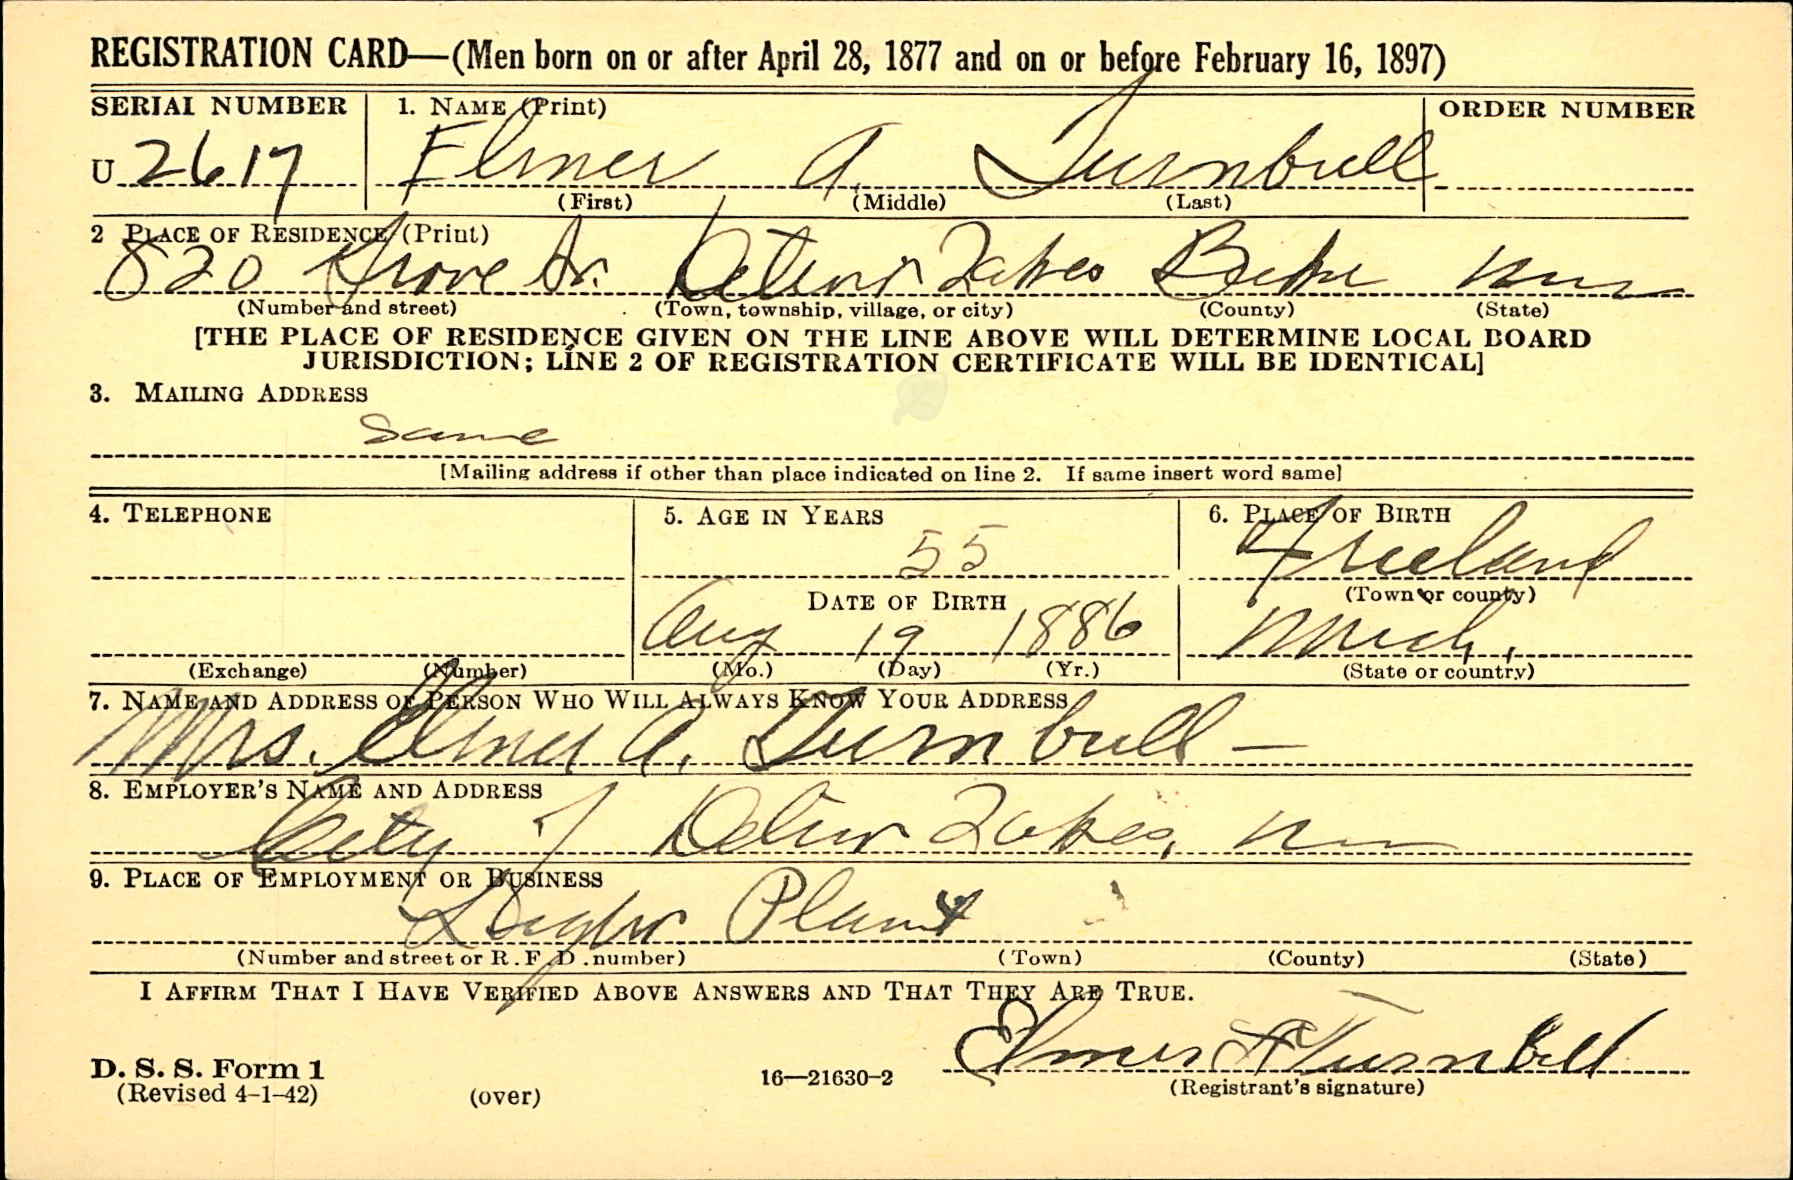 REGISTRATION CARD—(Men born on or after April 28, 1877 and on or before February 16, 1897)
SERIAL NUMBER 1. NAME (Print) ORDER NUMBER
U 2617 Elmer A. Turnbull
(First) (Middle) (Last)
2 PLACE OF RESIDENCE (Print)
820 Grove St. Detroit Lakes Becker Minn
(Number and street) (Town, township, village, or city) (County) (State)
[THE PLACE OF RESIDENCE GIVEN ON THE LINE ABOVE WILL DETERMINE LOCAL BOARD
JURISDICTION; LINE 2 OF REGISTRATION CERTIFICATE WILL BE IDENTICAL]
3. MAILING ADDRESS
Same
[Mailing address if other than place indicated on line 2. If same insert word same]
4. TELEPHONE 5. AGE IN YEARS 6. PLACE OF BIRTH
55 Freeland
DATE OF BIRTH (Town or county)
Aug 19 1886 Mich.
(Exchange) (Number) (Mo.) (Day) (Yr.) (State or country)
7. NAME AND ADDRESS OF PERSON WHO WILL ALWAYS KNOW YOUR ADDRESS
Mrs. Elmer A. Turnbull —
8. EMPLOYER'S NAME AND ADDRESS
City of Detroit Lakes, Minn
9. PLACE OF EMPLOYMENT OR BUSINESS
Plant
(Number and street or R. F. D. number) (Town) (County) (State)
I AFFIRM THAT I HAVE VERIFIED ABOVE ANSWERS AND THAT THEY ARE TRUE.
Elmer A Turnbull
D. S. S. Form 1
(Revised 4-1-42) (over) 16—21630-2 (Registrant's signature)